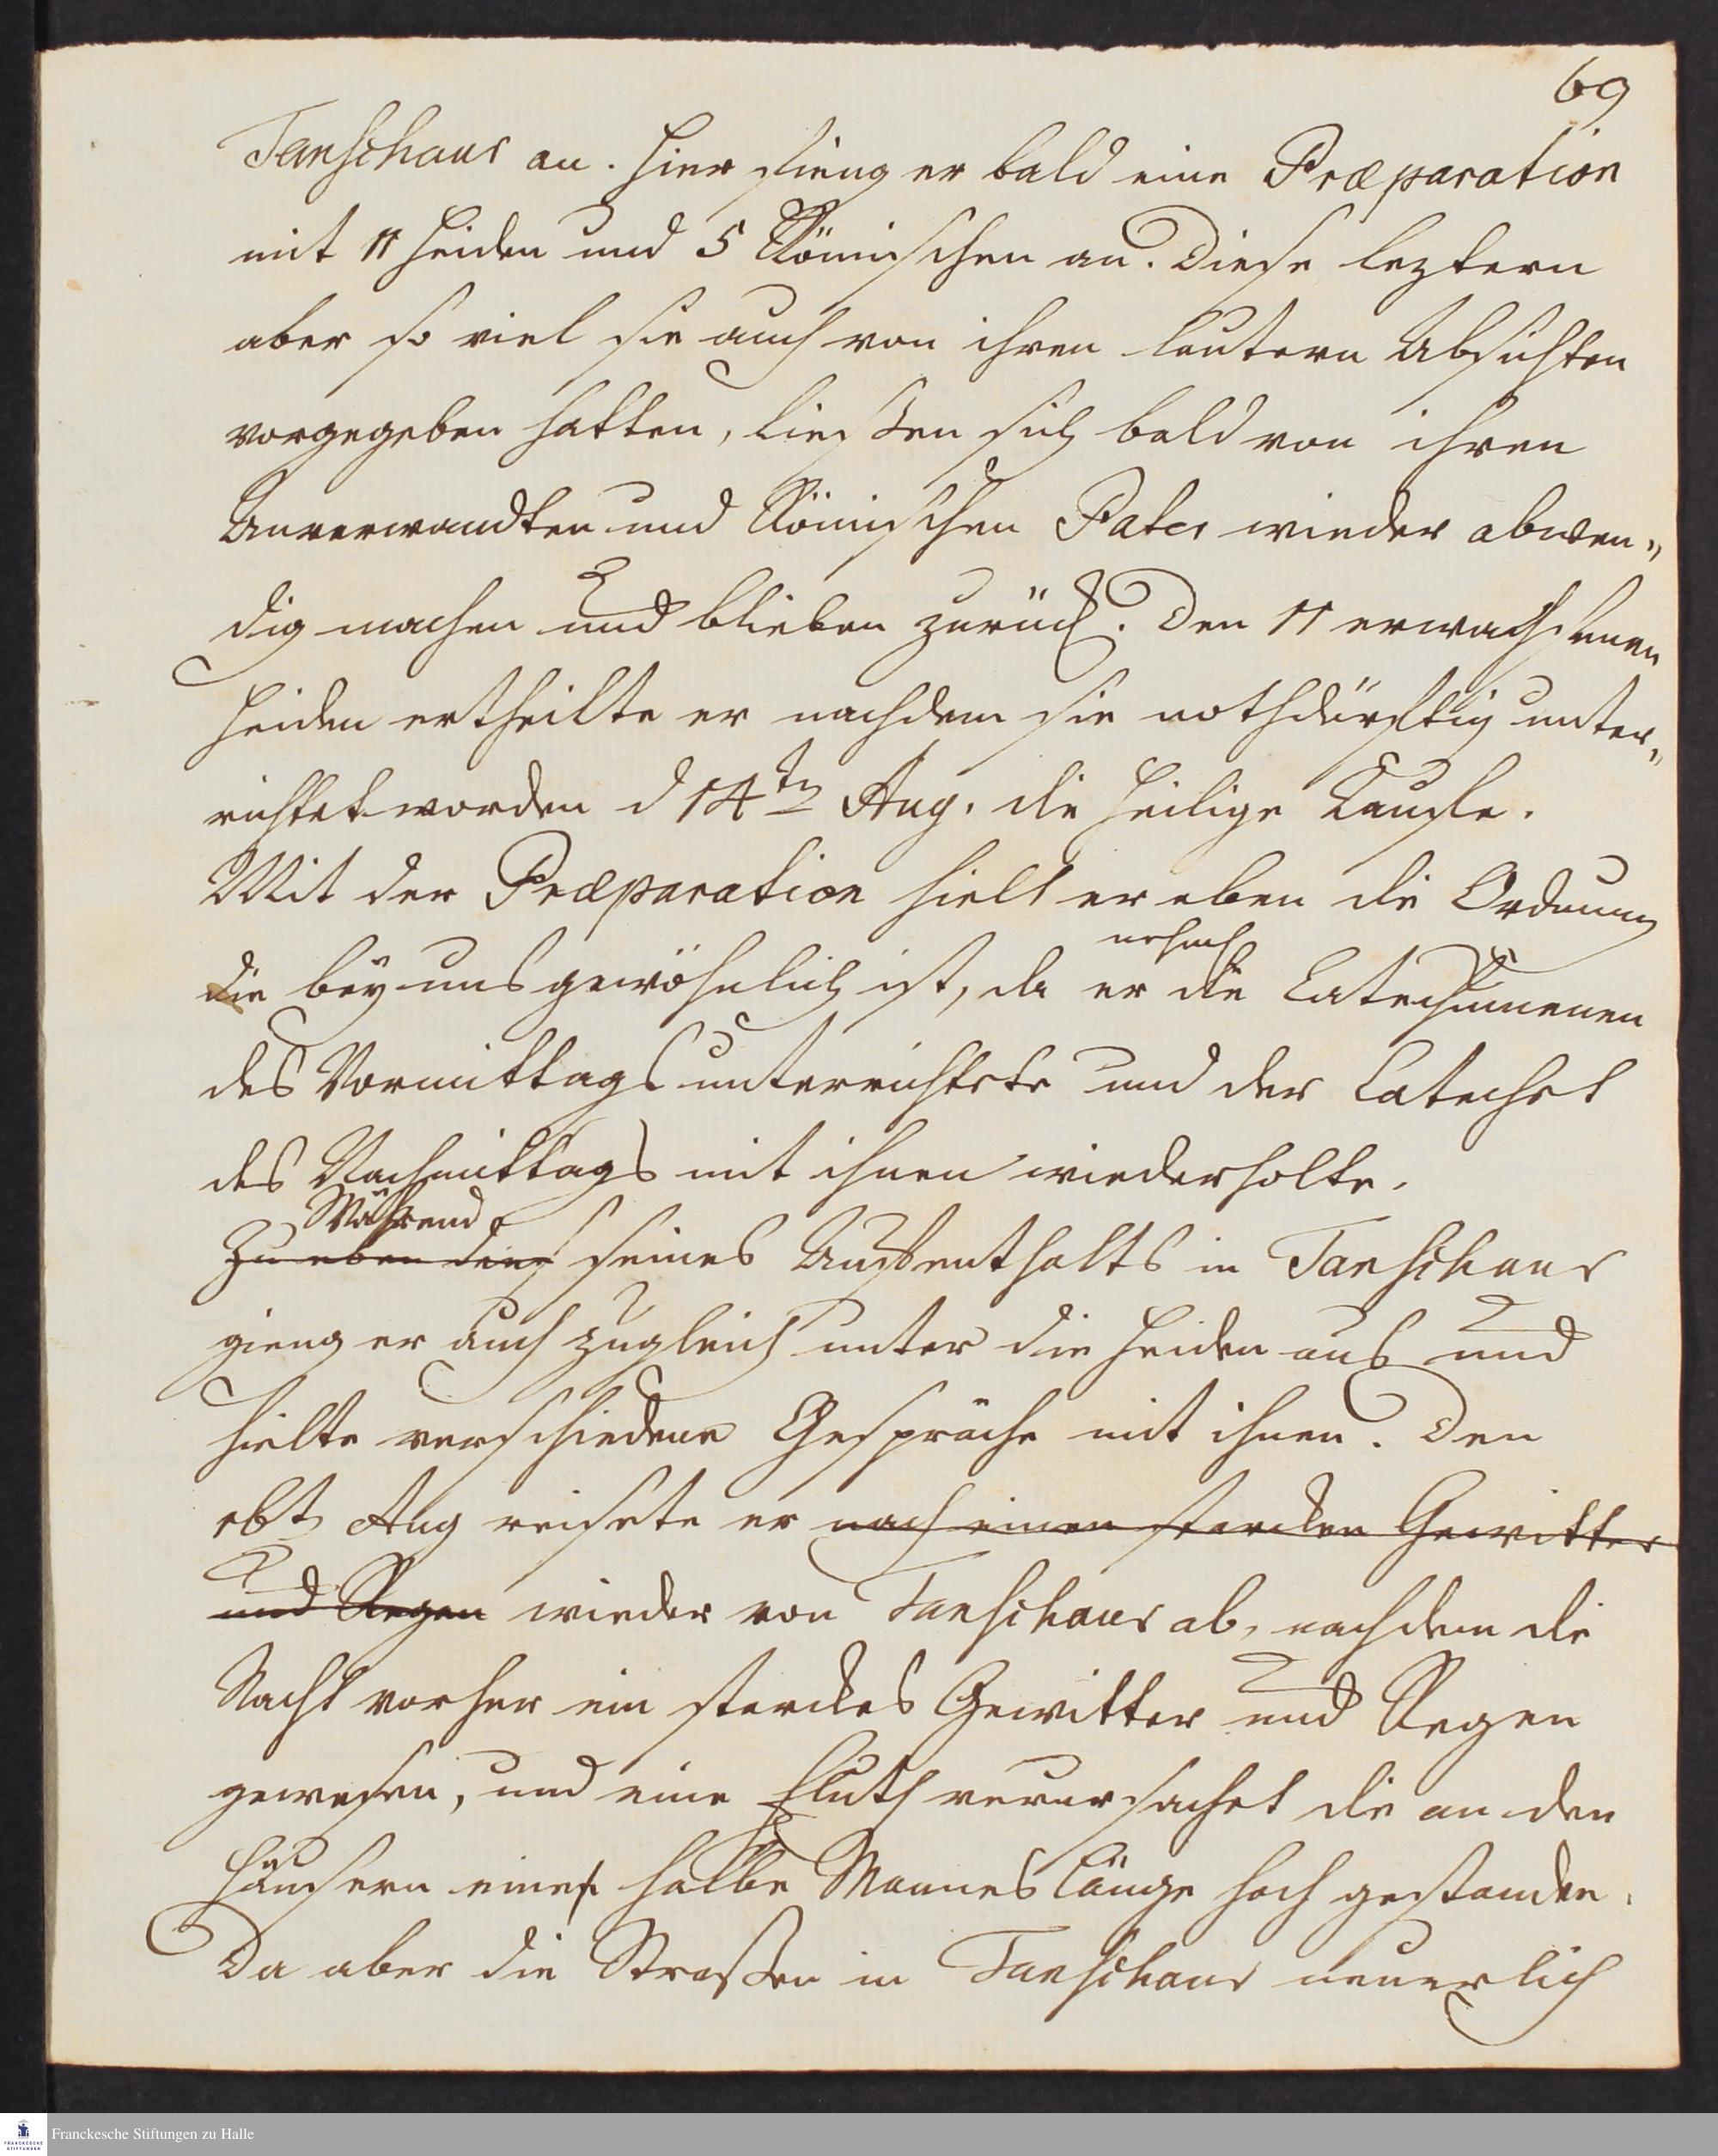 69
Tanschaur an. Hier fieng er bald eine Præparation
mit 11 Heiden und 5 Römischen an. Diese leztern
aber so viel sie auch von ihren lautern Absichten
vorgegeben hatten, ließen sich bald von ihren
Anverwandten und Römischen Pater wieder abwen„
dig machen und blieben zurück. Den 11 erwachsenen
Heiden ertheilte er nachdem sie nothdürftig unter„
richtet worden d 14ten Aug. die heilige Taufe.
Mit der Præparation hielt er eben die Ordnung
die bey uns gewöhnlich ist, da er die Catechumenen
des Vormittags unterrichtete und der Catechet
des Nachmittags mit ihnen wiederholte.
Während
Zu eben dies seines Aufenthalts in Tanschaur
gieng er auch zugleich unter die Heiden aus und
hielte verschiedene Gespräche mit ihnen. Den
16t Aug reisete er nach einen starcken Gewitter
und Regen wieder von Tanschaur ab, nachdem die
Nacht vorher ein starckes Gewitter und Regen
gewesen, und eine Fluth verursachet die an den
Häusern eines halbe Mannes länge hoch gestanden.
Da aber die Straßen in Tanschaur neuerlich
Franckesche Stiftungen zu Halle